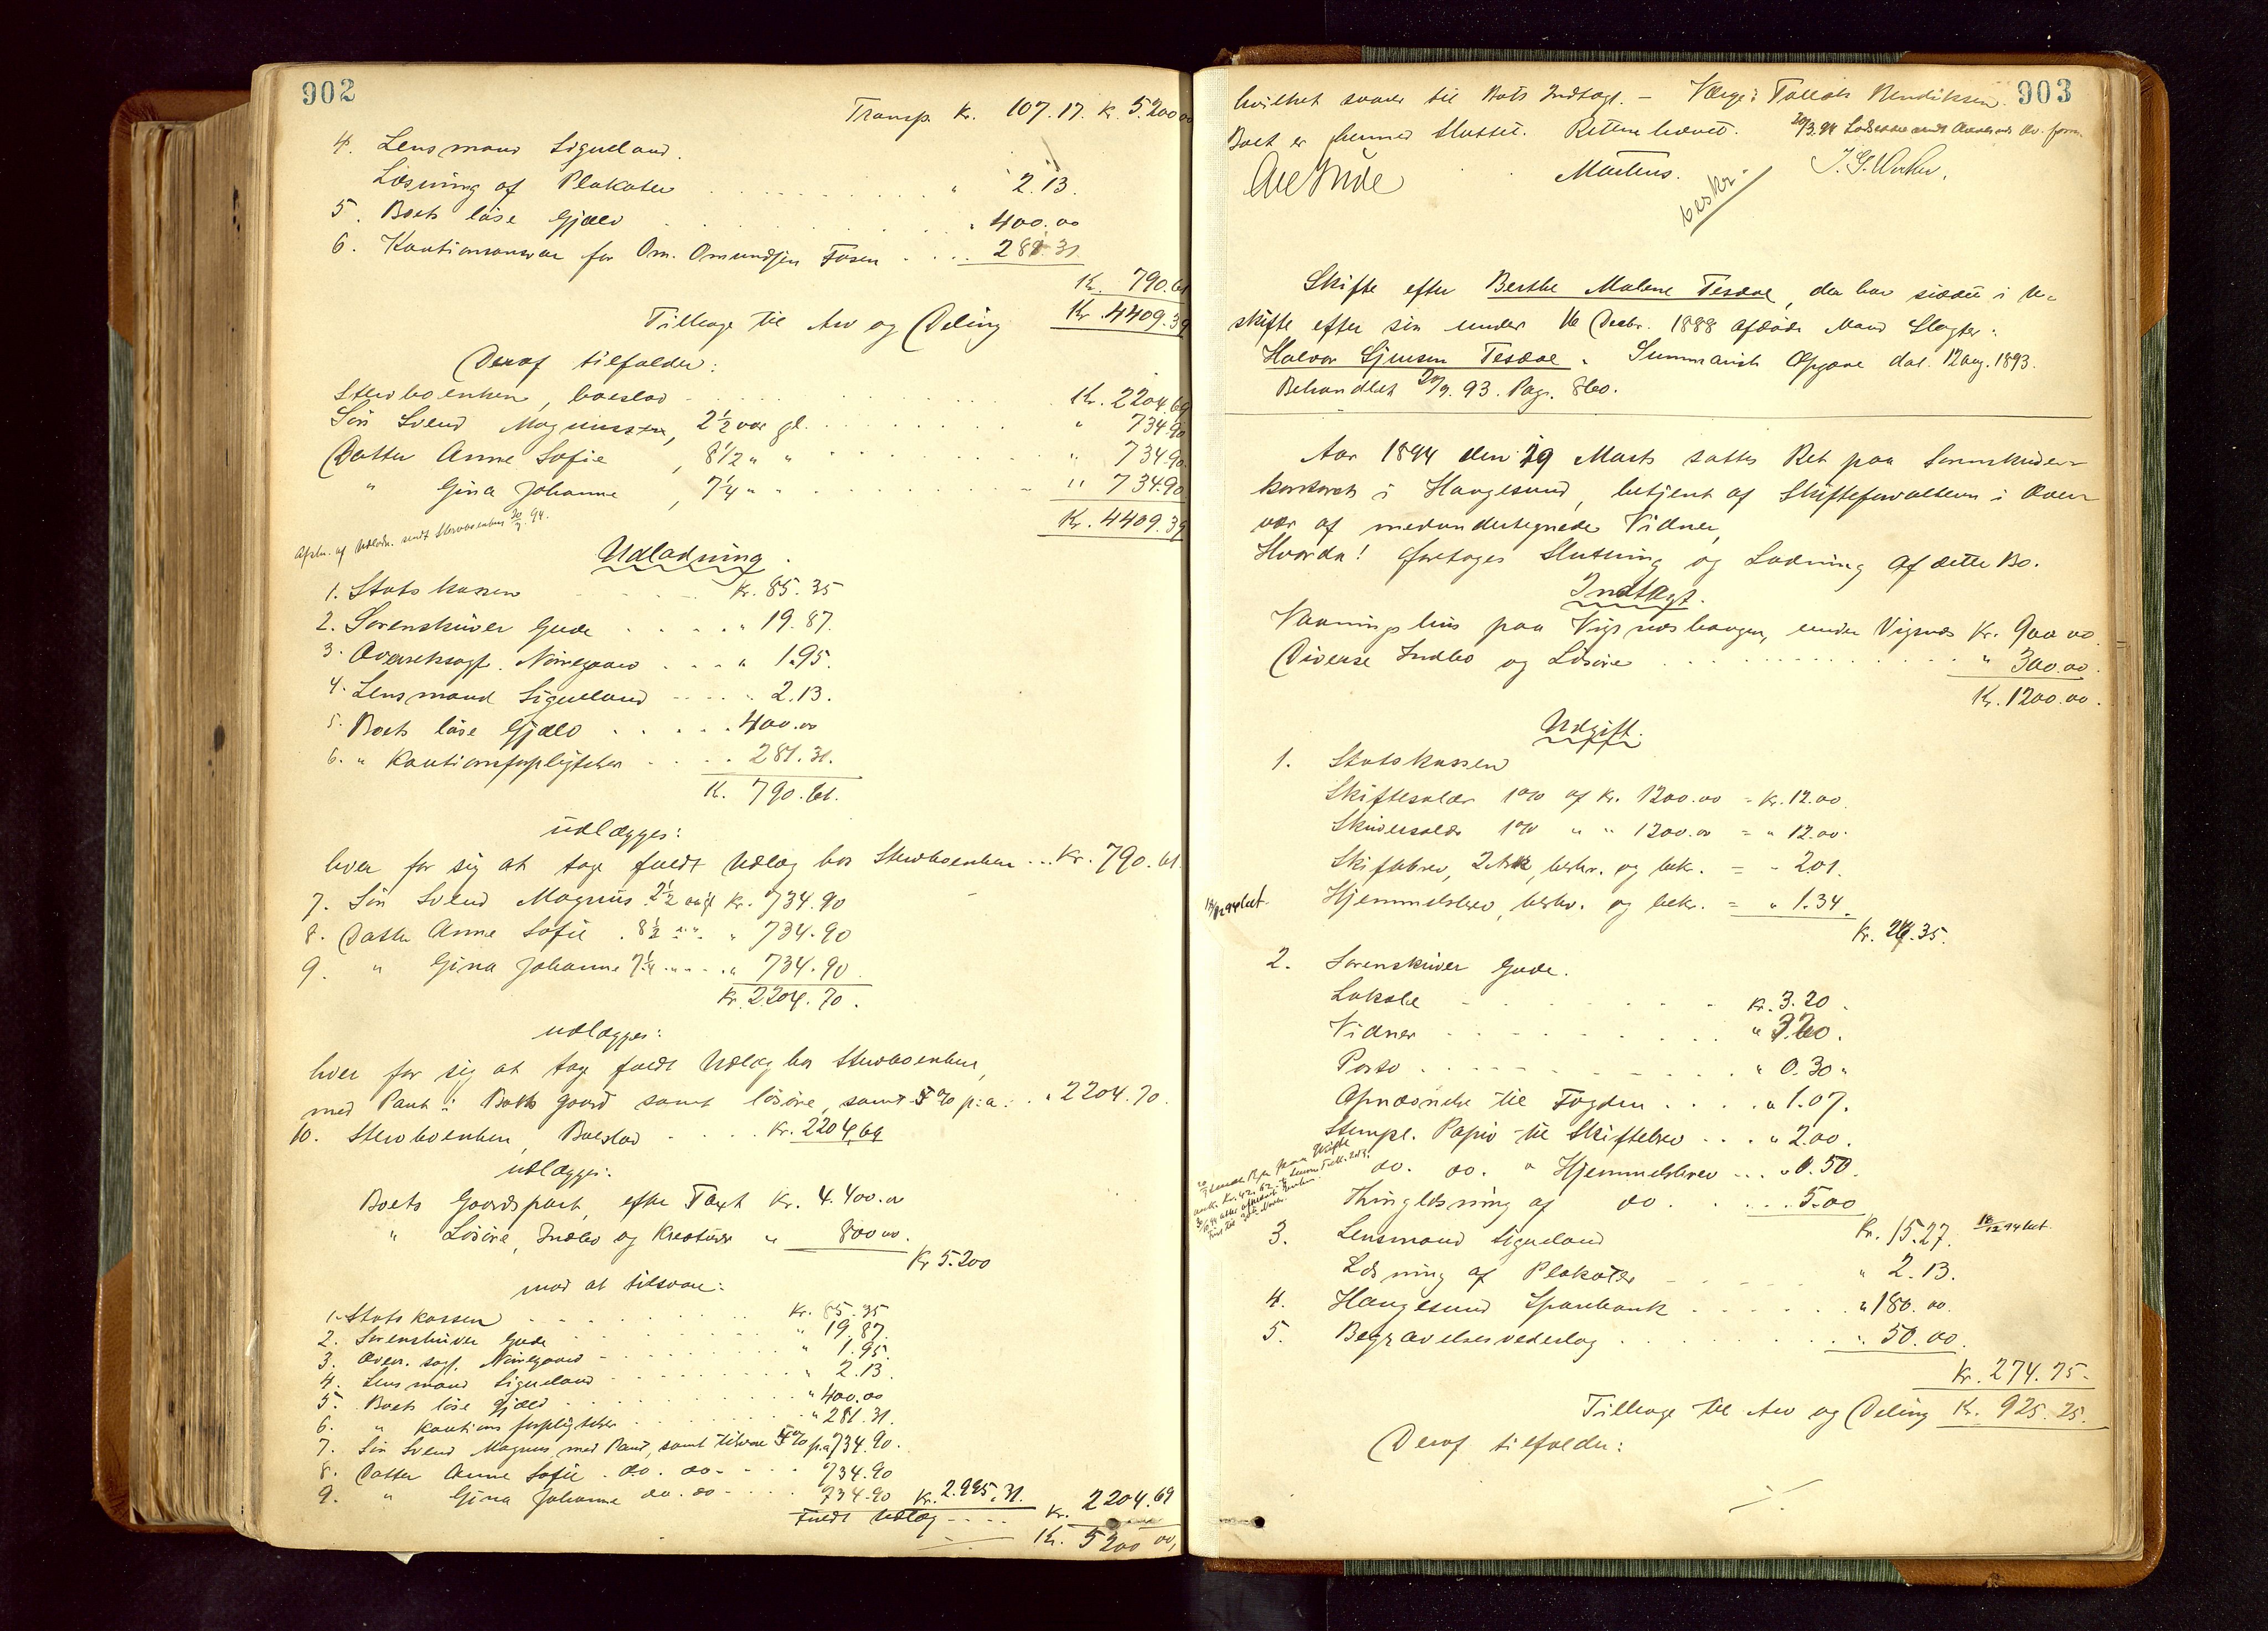 902
Transp. Kr. 107.17. Kr. 5.200.00
4. Lensmand Sigveland.
Læsning af Plakater " 2.13.
5. Boets løse Gjæld " 400.00
6. Kautionsansvar for Om. Omundsen Fosen 281.31.
Kr. 790.61
Tilbage til Arv og Deling Kr. 4409.39
Deraf tilfalder:
Stervboenken, boeslod Kr. 2204.69
Søn Svend Magnussen, 2½ aar gl. " 734.90
Datter Anne Sofie, 8½ " " " 734.90.
" Gina Johanne, 7¼ " " " 734.90
Kr. 4409.39
Afskr. af Udlodn. sendt Stervboenken 94.
Udlodning.
1. Statskassen Kr. 85.35
2. Sorenskriver Gude " 19.87.
3. Oversagf. Nørregaard " 1.95.
4. Lensmand Sigveland " 2.13.
5. Boets løse Gjæld 400.00
6. " Kautionsforpligtelser 281.31.
Kr. 790.61.
udlægges:
hver for sig at tage fuldt Udlæg hos Stervboenken Kr. 790.61.
7. Søn Svend Magnus 2½ aar gl Kr. 734.90
8. Datter Anne Sofie 8½ " " " 734.90
9. " Gina Johanne 7¼ " " " 734.90
Kr. 2204.70.
udlægges:
hver for sig at tage fuldt Udlæg hos Stervboenken,
med Pant i Boets Gaard samt løsøre, samt 5% p:a: " 2204.70.
10. Stervboenken, Boeslod Kr. 2204.69
udlægges:
Boets Gaardspart, efter Taxt Kr. 4.400.00
" Løsøre, Indbo og Kreaturer " 800.00.
Kr 5.200
mod at tilsvare:
1. Statskassen Kr. 85.35
2. Sorenskriver Gude " 19.87.
3. Overr. sagf. Nørregaard " 1.95.
4. Lensmand Sigveland " 2.13.
5. Boets løse Gjæld " 400.00
6. " Kautions forpligtelser " 281.31.
7. Søn Svend Magnus, med Pant, samt tilsvar 5% p.a 734.90.
8. Datter Anne Sofie do. do. 734.90
9. " Gina Johanne do. do 734.90 Kr. 2.995.31.
Fuldt Udlæg Kr. 2204.69
Kr. 5200.00,
903
hvilket svarer til Bots Indtægt. – Værge: Tollak Bendiksen.
Boet er hermed sluttet. Retten hævet.
Mæstens.
beskr.
Skifte efter Berthe Malene Tesdal, der har siddet i U-
skifte efter sin under 16 Decbr. 1888 afdøde Mand Slagter
Halvor Gjensen Tesdal. Summarisk Opgave dat. 12 Aug. 1893.
Behandlet 20/9. 93. Pag. 860.
Aar 1894 den 29 Marts sattes Ret paa Sorenskriver-
kontoret i Haugesund, betjent af Skifteforvalteren i Over-
vær af medundertegnede Vidner,
Hvorda! foretoges Slutning og Lodning af dette Bo.
Indtægt.
Vaaningshus paa Vigsnes haugen, under Vigsnes Kr. 900.00
Diverse Indbo og Løsøre " 300.00.
Kr. 1200.00.
Udgift.
1. Statskassen
Skiftesalær 1% af Kr. 1200.00 = Kr. 12.00.
Skriversalær 1% " " 1200.00 = " 12.00.
Skiftebrev, 2 Ark, beskr. og bek. = " 2.01.
Hjemmelsbrev, beskr. og bekr. = " 1.34.
Kr. 27.35.
2. Sorenskriver Gude.
Lokale Kr. 3.20.
Vidner " 3.20.
Porto " 0.30 "
Afmældelse til Fogden " 1.07.
Stempl. Papir til Skiftebrev " 2.00.
do. do. " Hjemmelsbrev " 0.50.
Thinglæsning af do. 5.00
Kr. 15.27.
3. Lensmand Sigveland
Læsning af Plakater " 2.13.
4. Haugesund Sparebank " 180.00.
5. Begravelsesvederlag " 50.00.
Kr. 274.75.
Tilbage til Arv og Deling Kr. 925.25.
Deraf tilfalder: